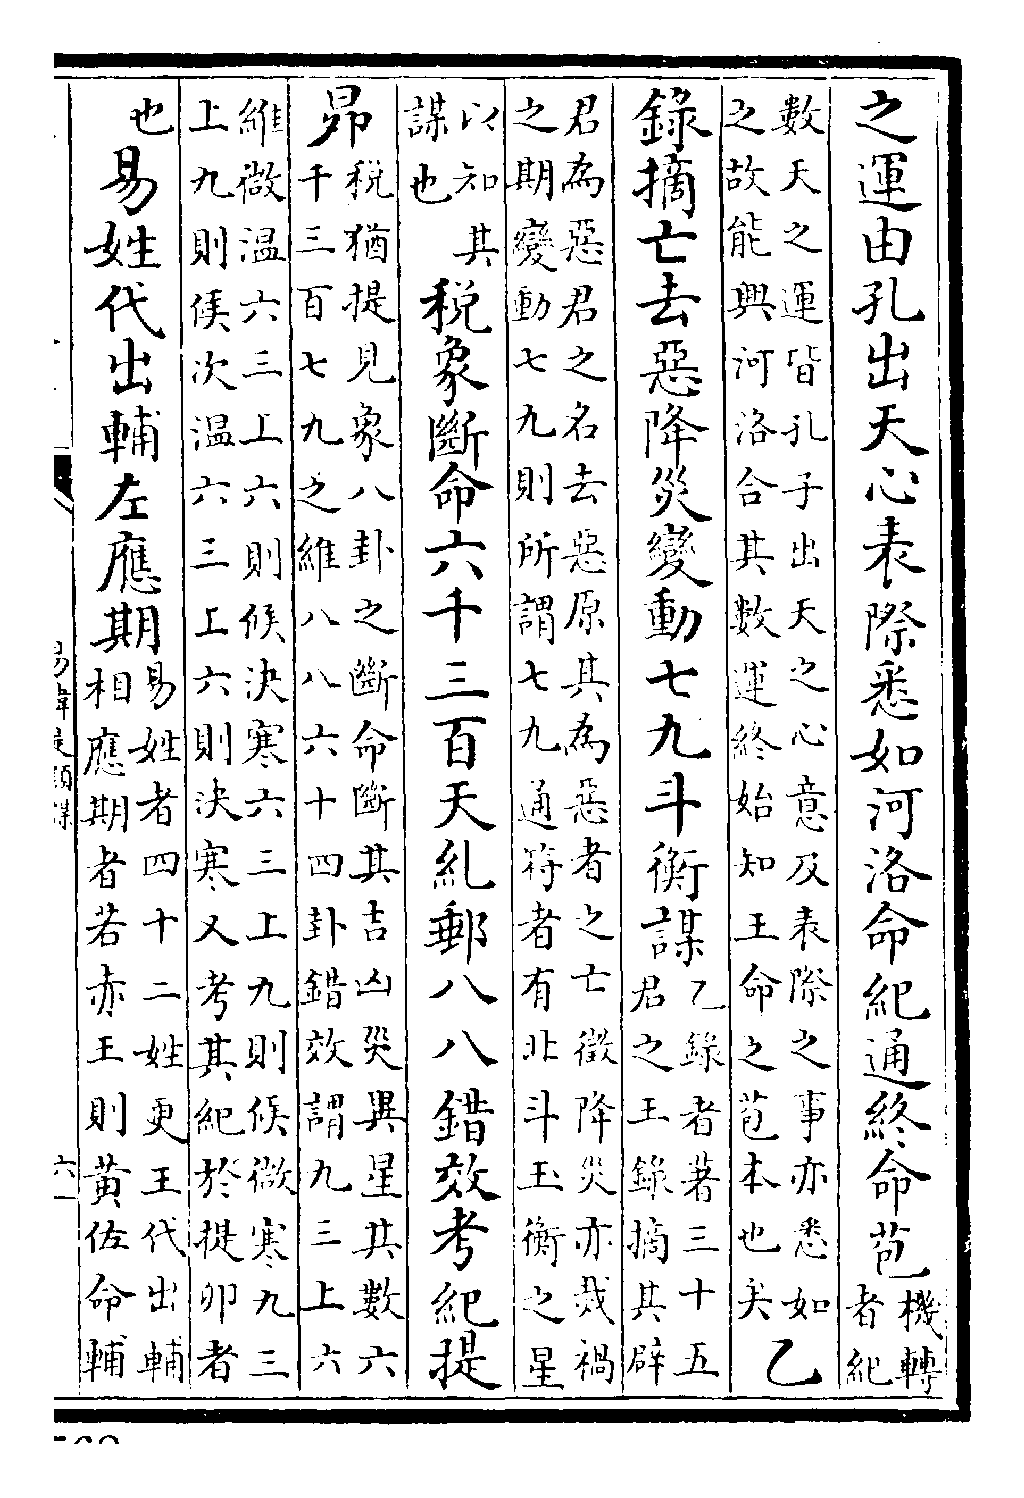 之運由孔出天心表際悉如河洛命紀通終命苞機轉者紀
數天之運皆孔子出天之心意及表際之事亦悉如之故能興河洛合其數運終始知王命之苞本也矣乙
錄摘亡去惡降災變動七九斗衡謀乙錄者著三十五君之王錄摘其辟
君為惡君之名去惡原其為惡者之亡徵降災亦烖禍之期變動七九則所謂七九通符者有北斗玉衡之星
以知其謀也稅象斷命六千三百天糺郵八八錯效考紀提
昴稅猶提見象八卦之斷命斷其吉凶災異星其數六千三百七九之維八八六十四卦錯效謂九三上六
維微溫六三上六則候決寒六三上九則候微寒九三上九則候次溫六三工六則決寒又考其紀於提卯者
也易姓代出輔左應期易姓者四十二姓更王代出輔相應期者若赤王則黃佐命輔
六